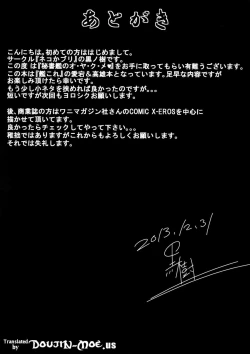 あとがき
こんにちは。初めての方ははじめまして。
サークル『ネコかブリ』の黒ノ樹です。
この度は『秘書艦のオ・ヤ・ク・メ♥』をお手に取ってもらい有難うございます。
この本は『艦これ』の愛宕&高雄本となっています。足早な内容ですが
お楽しみ頂けたら幸いです。
もう少し小ネタを挟めれば良かったのですが。。。
短いですが次回もヨロシクお願いします。
また、商業誌の方はワニマガジン社さんのCOMIC X-EROSを中心に
描かせて頂いてます。
良かったらチェックしてやって下さい。。。
雑把ではありますがこれからもよろしくお願いします。
それでは失礼します。
2013.12.31
黒ノ樹
Translated by DOUJIN-MOE.US